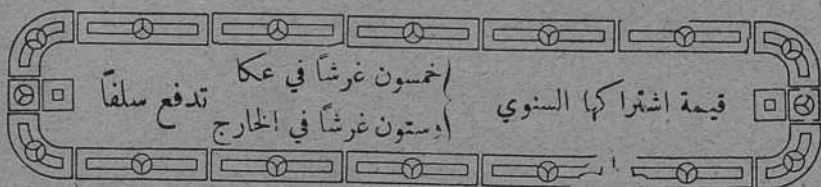 قيمة اشتراكها السنوي
خمسون غرشاً في عكا
وستون غرشاً في الخارج
تدفع سلفاً